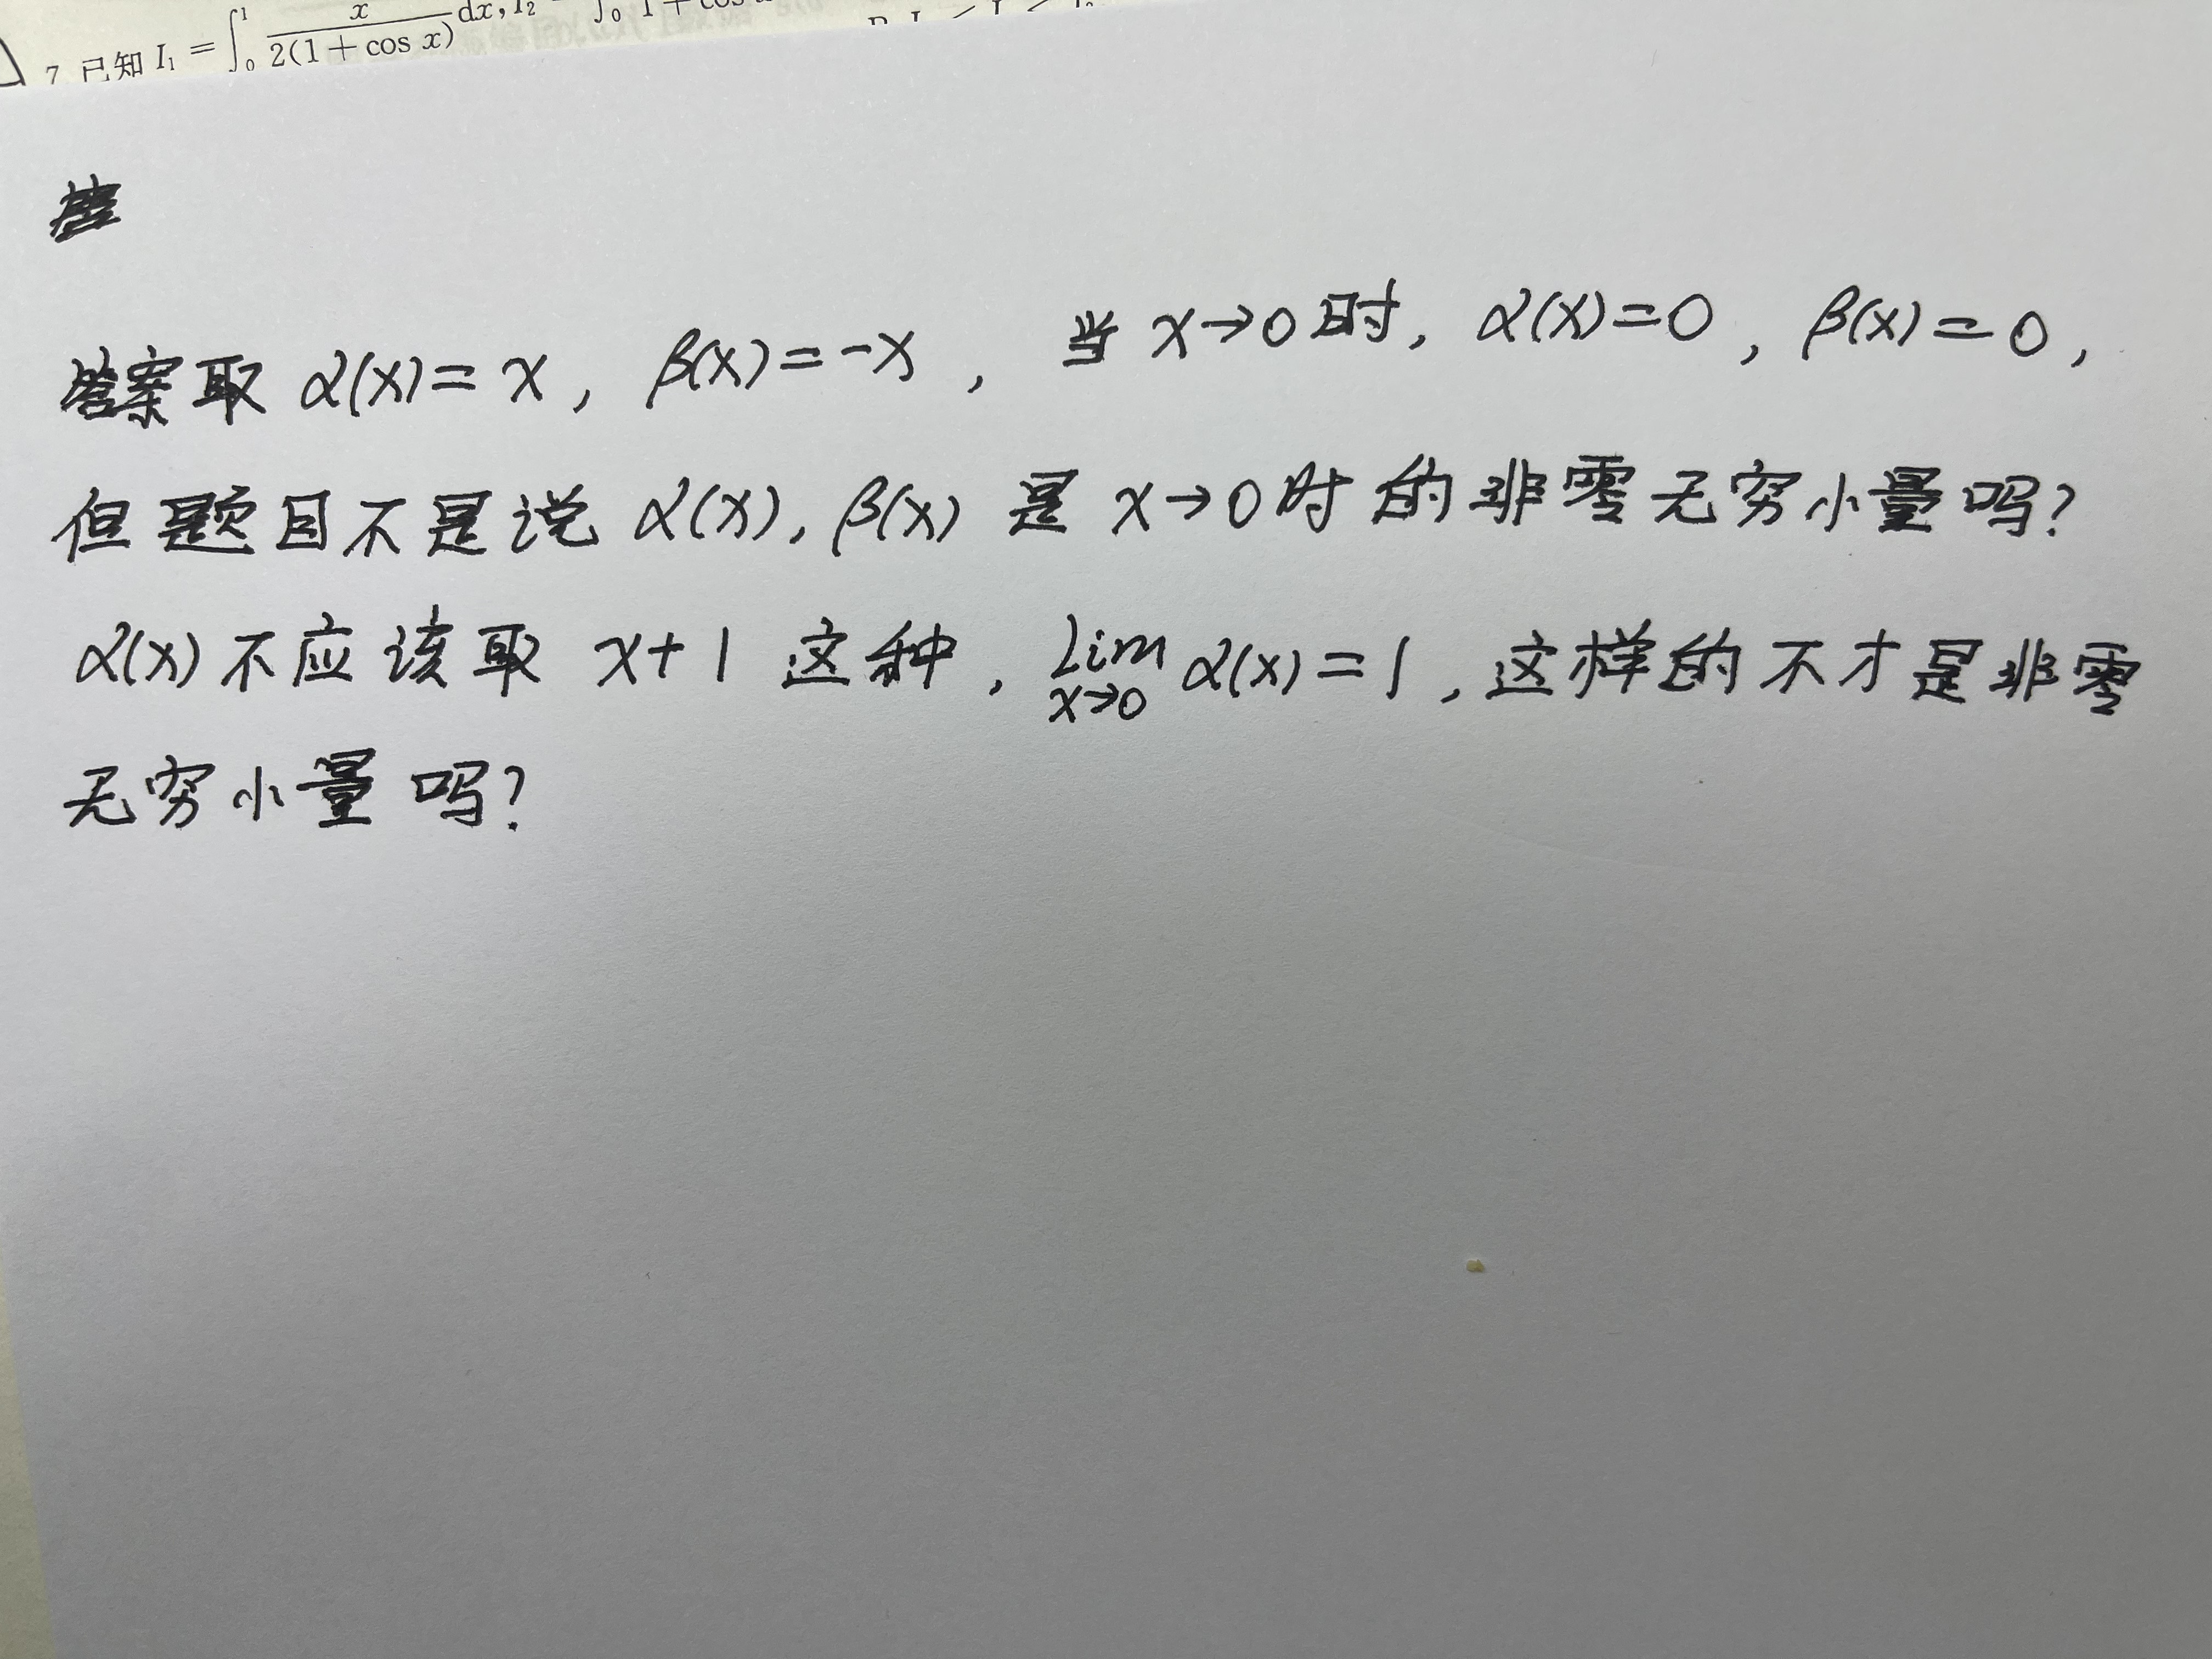 7 已知 I₁ = ∫₀¹ x/2(1+cos x) dx, I₂
答案取 α(x)=x, β(x)=-x, 当 x→0时, α(x)=0, β(x)=0,
但题目不是说 α(x), β(x) 是 x→0时的非零无穷小量吗?
α(x)不应该取 x+1 这种, lim x→0 α(x)=1, 这样的不才是非零
无穷小量吗?